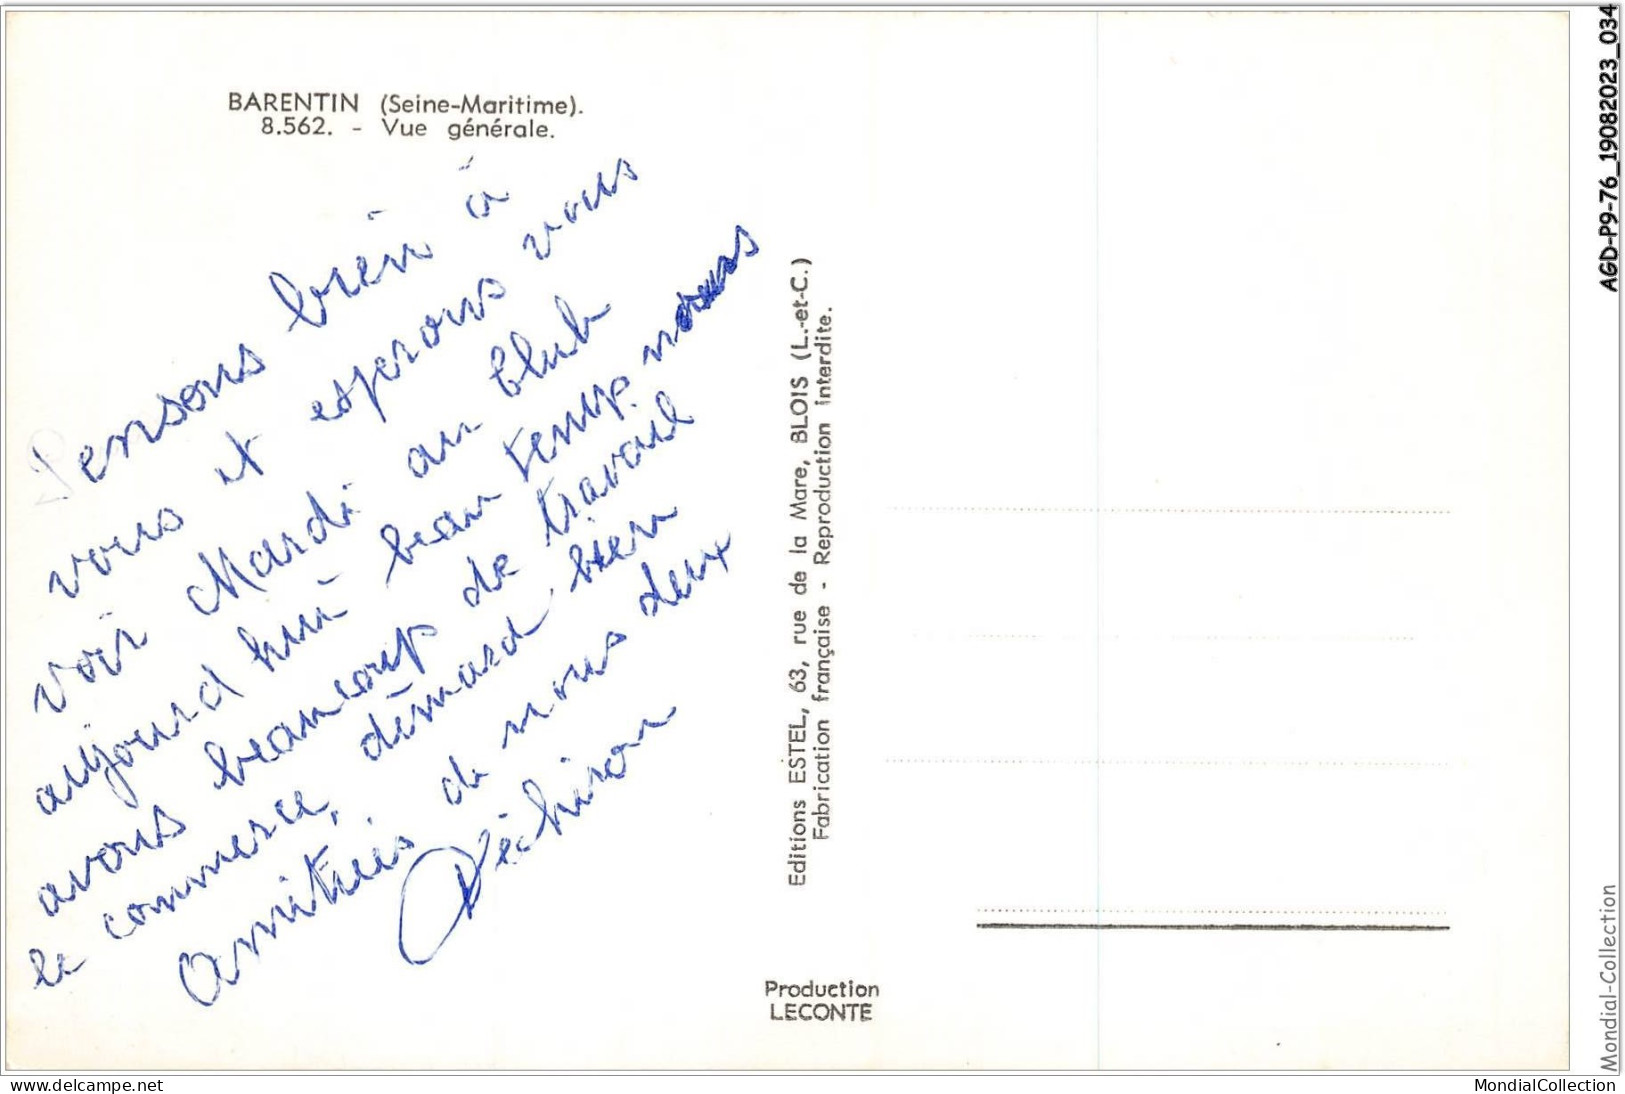 BARENTIN (Seine-Maritime).
8.562. - Vue générale.
Pensons bien à
vous et esperons vous
voir Mardi au Club
aujourd hui beau temps nous
avons beaucoup de travail
le commerce, démard bien
amitiés de nous deux
Editions ESTEL, 63, rue de la Mare, BLOIS (L.-et-C.)
Fabrication française - Reproduction interdite.
Production
LECONTE
AGD-P9-76_19082023_034
Mondial-Collection
www.delcampe.net
MondialCollection